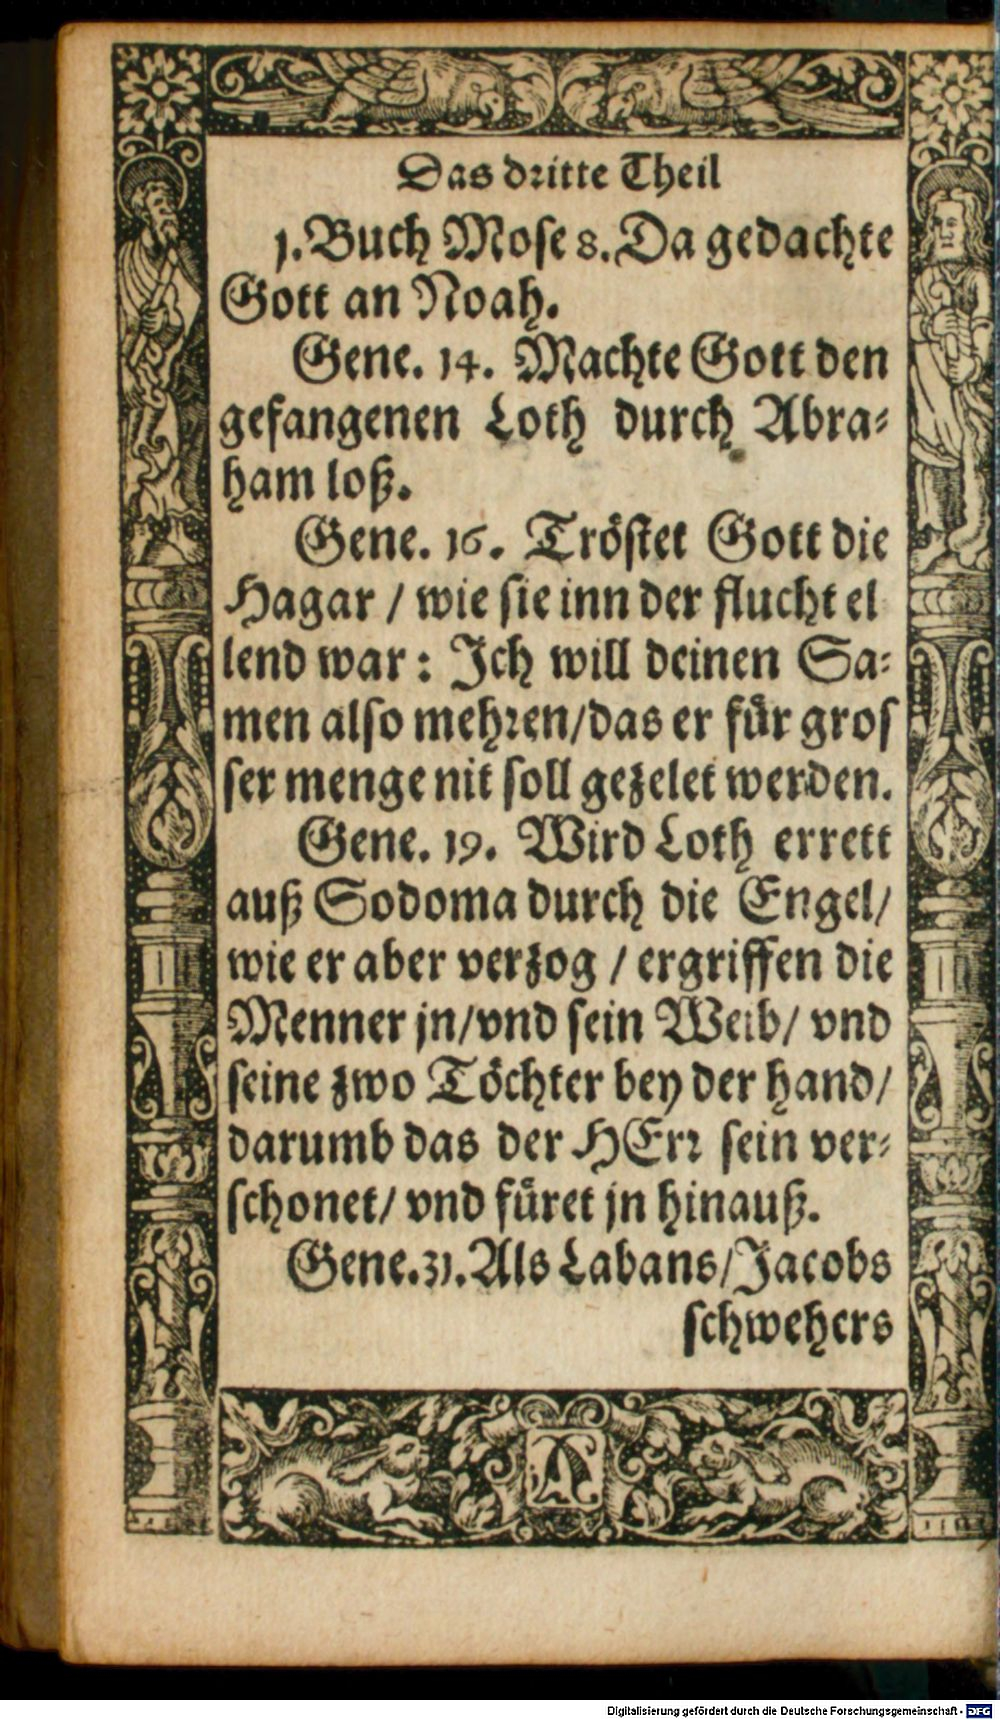 Das dritte Theil
1. Buch Mose 8. Da gedachte
Gott an Noah.
Gene. 14. Machte Gott den
gefangenen Loth durch Abra⸗
ham loß.
Gene. 16. Tröstet Gott die
Hagar / wie sie inn der flucht el
lend war : Ich will deinen Sa⸗
men also mehren/das er für gros
ser menge nit soll gezelet werden.
Gene. 19. Wird Loth errett
auß Sodoma durch die Engel/
wie er aber verzog / ergriffen die
Menner jn/vnd sein Weib/ vnd
seine zwo Töchter bey der hand/
darumb das der HErr sein ver⸗
schonet/ vnd füret jn hinauß.
Gene. 31. Als Labans/Jacobs
schwehers
Digitalisierung gefördert durch die Deutsche Forschungsgemeinschaft - DFG